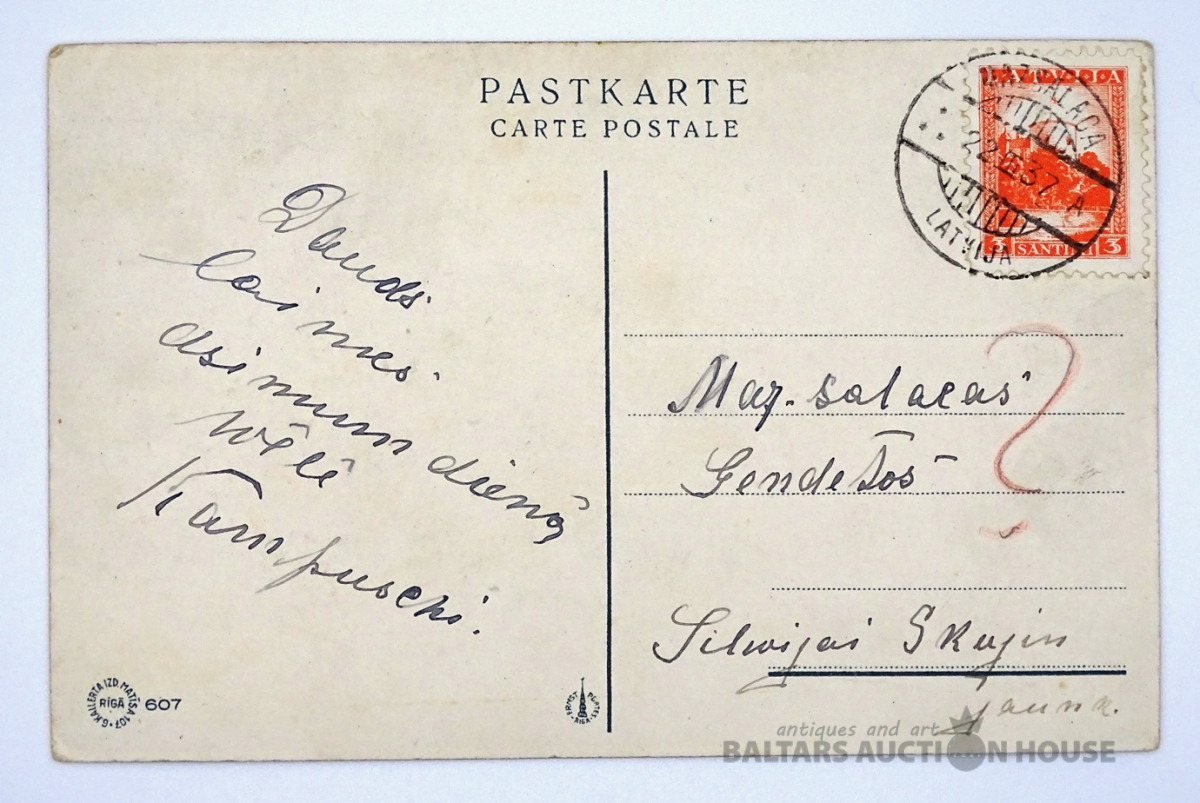 PASTKARTE
CARTE POSTALE
LATVIJA
3 SANTIMI 3
MAZSALACA
22 III 37 A
LATVIJA
Daudz
laimes
dsimum dienā
wēlē
Kampuschi.
Maz-salacas
Gendešos
?
Silwijai Skujin
jaunk.
G. KALLERTA IZD. MATĪSA 107.
RĪGĀ
607
ERNST PLATES RIGA
antiques and art
BALTARS AUCTION HOUSE